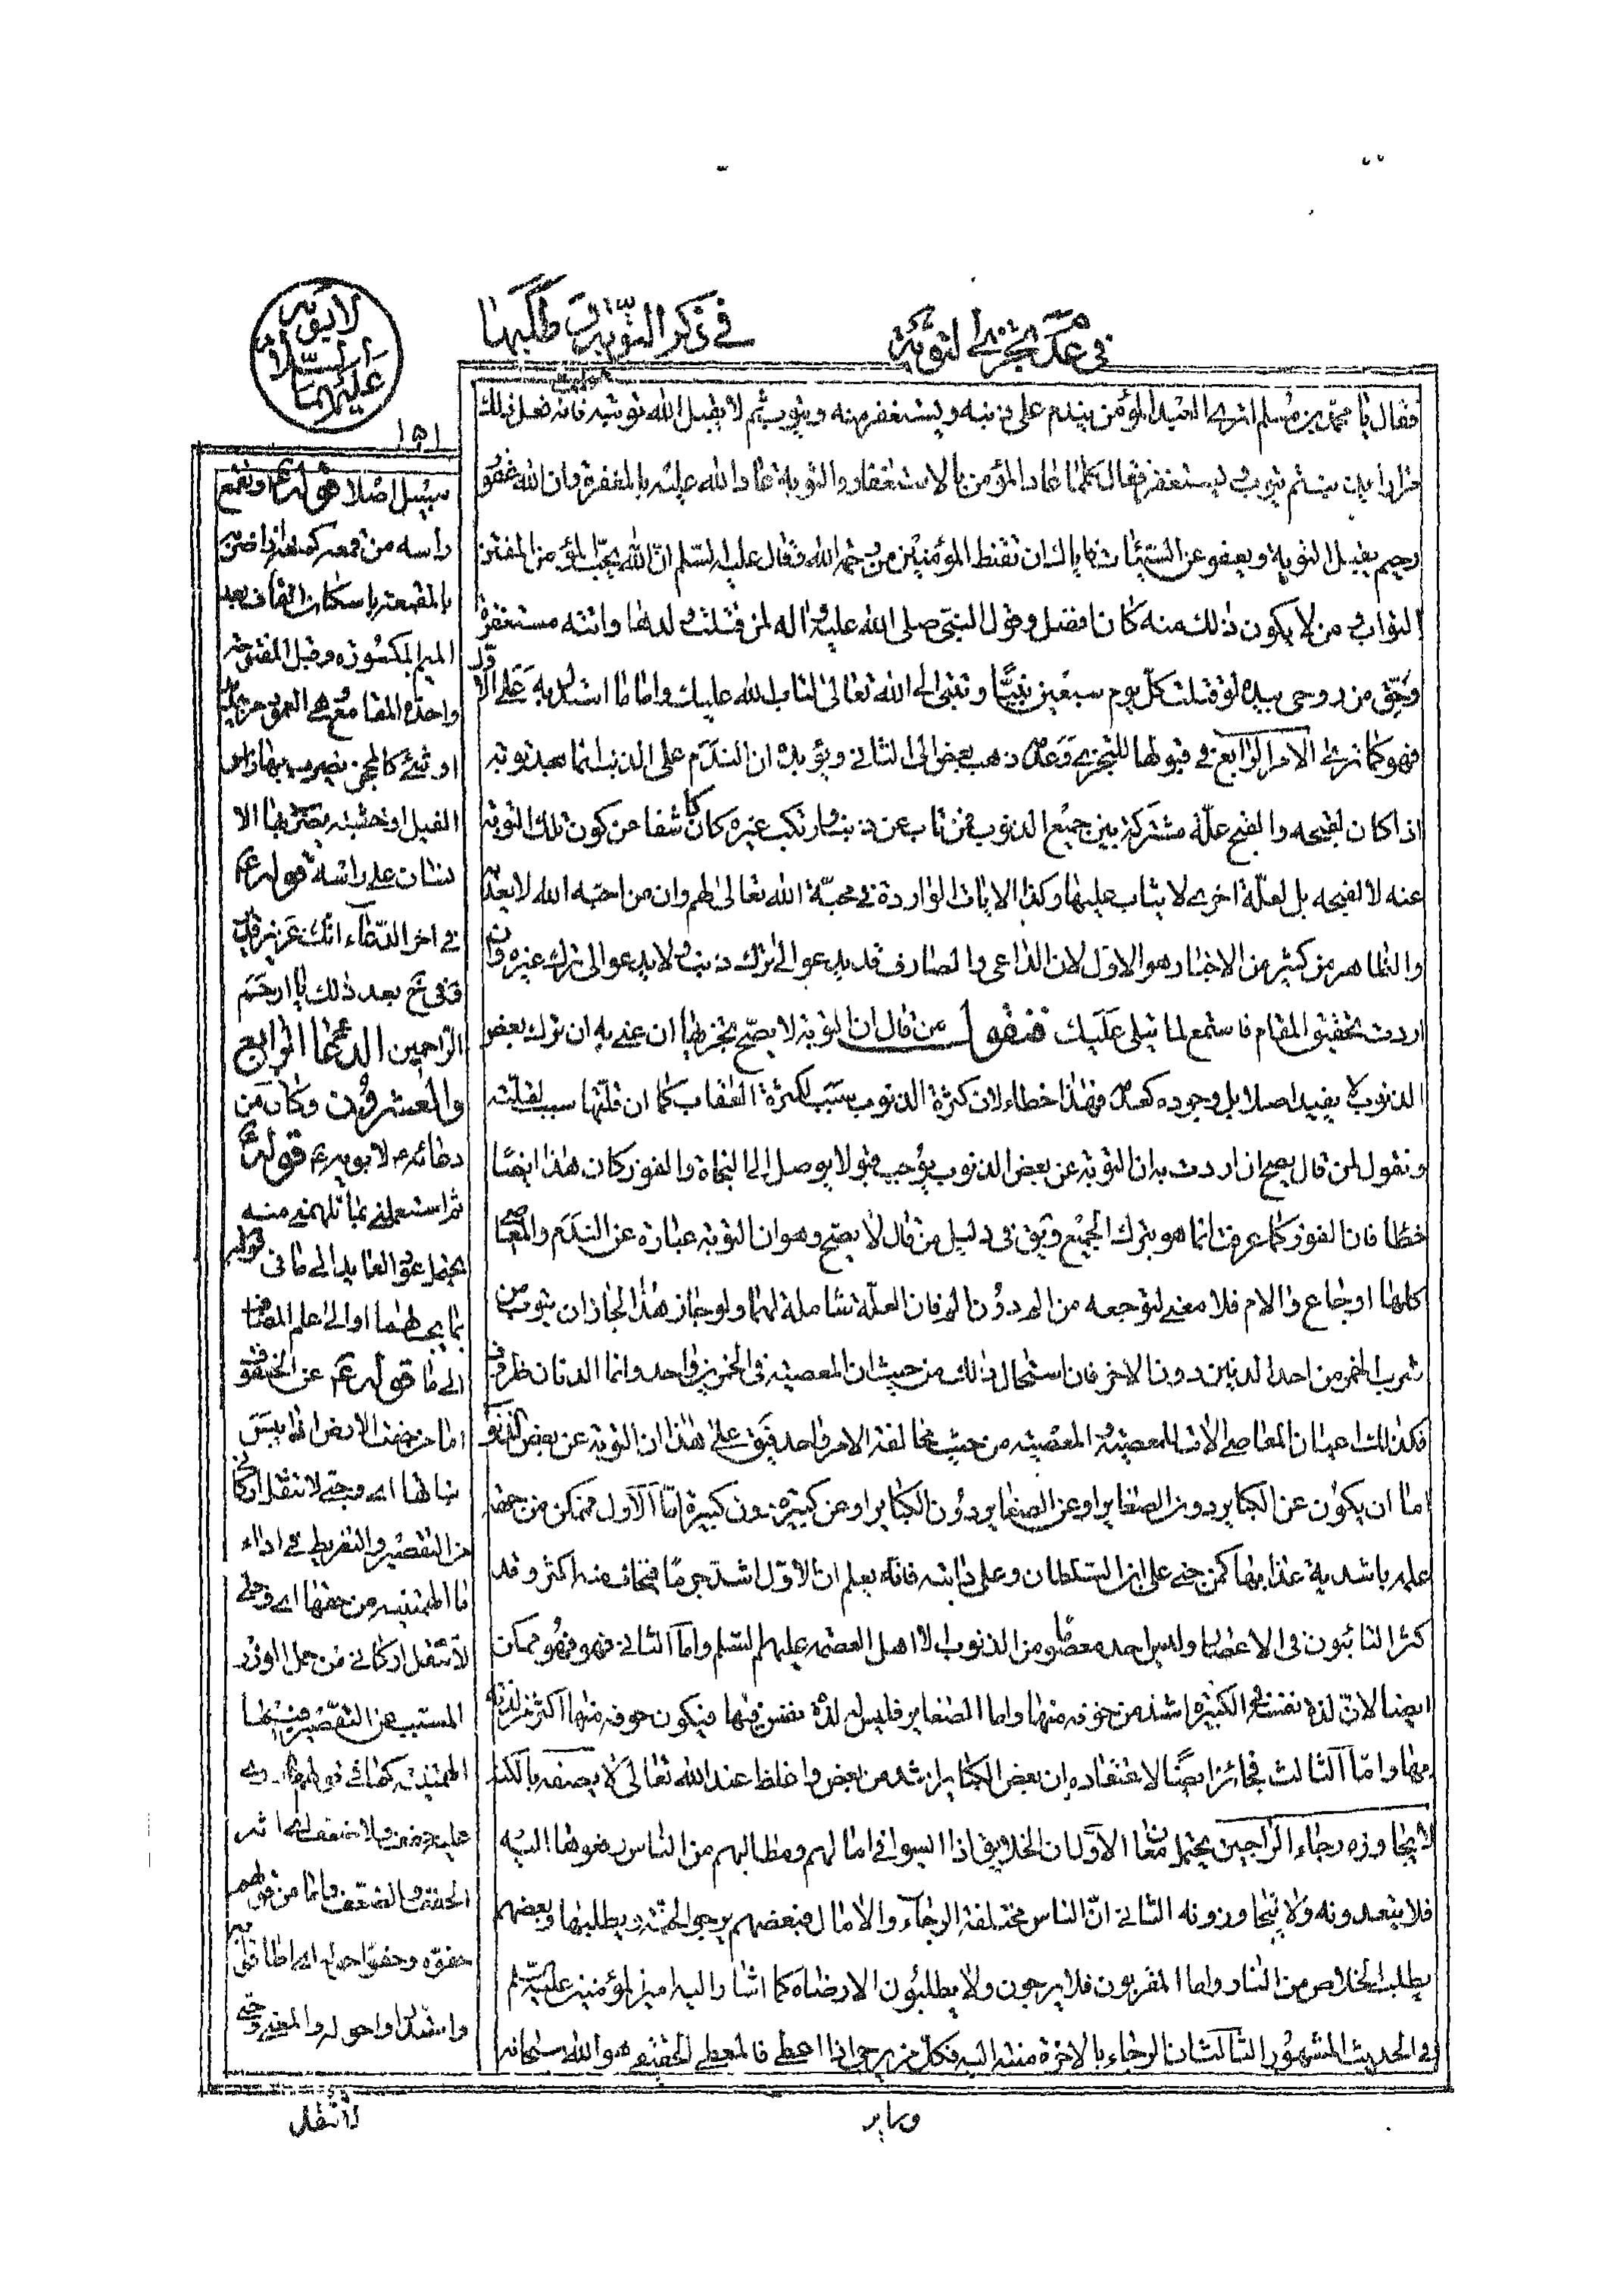 في عدم تجزي التوبة
في ذكر التوبة و طلبها
لابويه عليهما السلام
١٥١
فقال يا محمد بن مسلم اترى العبد المؤمن يندم على ذنبه ويستغفر منه ويتوب ثم لا يقبل الله توبته فانه فعل ذلك
مرارا يذنب ثم يتوب ويستغفر فقال كلما عاد المؤمن بالاستغفار والتوبة عاد الله عليه بالمغفرة وان الله غفور
رحيم يقبل التوبة ويعفو عن السيئات فاياك ان تقنط المؤمنين من رحمة الله وقال عليه السلم ان الله يحب المؤمن المفتن
التواب ومن لا يكون ذلك منه كان افضل وقول النبي صلى الله عليه واله لمن قتلت ولدها واتته مستغفرة
وحق من روحي بيده لو قتلت كل يوم سبعين نبيا وتبتي الى الله تعالى لتاب الله عليك واما ما استدل به على الاول
فهو كما ترى الامر الرابع في قبولها للتجزي وعدمه ذهب بعض الى الثاني ويؤيده ان الندم على الذنب انما يعد توبة
اذا كان لقبحه والقبح علة مشتركة بين جميع الذنوب فمن تاب عن ذنب وارتكب غيره كان كاشفا عن كون تلك التوبة
عنه لا لقبحه بل لعلة اخرى لا يثاب عليها وكذا الايات الواردة في محبة الله تعالى لهم وان من احبه الله لا يعذبه
والظاهر من كثير من الاخبار هو الاول لان الداعي والصارف قد يدعو الى ترك ذنب ولا يدعو الى ترك غيره وان
اردت تحقيق المقام فاستمع لما يتلى عليك فنقول من قال ان التوبة لا يصح تجزيها ان عنى به ان ترك بعض
الذنوب لا يفيد اصلا بل وجوده كعدمه فهذا خطاء لان كثرة الذنوب سبب لكثرة العقاب كما ان قلتها سبب لقلته
ونقول لمن قال يصح ان اردت به ان التوبة عن بعض الذنوب يوجب قبولا يوصل الى النجاة والفوز كان هذا ايضا
خطا فان الفوز كما عرفت انما هو بترك الجميع وبقي في دليل من قال لا يصح وهو ان التوبة عبارة عن الندم والمعاصي
كلها اوجاع والام فلا معنى لتوجعه من الم دون الم فان العلة شاملة لهما ولو جاز هذا لجاز ان يتوب من
شرب الخمر من احد الدنين دون الاخر فان استحال ذلك من حيث ان المعصية في الخمرين واحد وانما الدنان ظروف
فكذلك اعيان المعاصي الات للمعصية المعصية من حيث مخالفة الامر واحد فبقى على هذا ان التوبة عن بعض الذنوب
اما ان يكون عن الكباير دون الصغاير او عن الصغاير دون الكباير او عن كبيرة دون كبيرة اما الاول فممكن من جهة
علمه باشدية عذابها كمن جنى على ابن السلطان وعلى دابته فانه يعلم ان الاول اشد جرما فيخاف منه اكثر وقد
كثر التائبون في الاعصار وليس احد معصوما من الذنوب الا اهل العصمة عليهم السلم واما الثاني فهو فهو ممكن
ايضا لان لذة نفسه في الكبيرة اشد من خوفه منها واما الصغاير فليس له لذة نفس فيها فيكون خوفه منها اكثر من لذته
بها واما الثالث فجائز ايضا لاعتقاده ان بعض الكباير اشد من بعض واغلظ عند الله تعالى
لا يجاوزه رجاء الراجين يحتمل معان الاول ان الخلايق اذا ايسوا في امالهم ومطالبهم من الناس رفعوها اليه
فلا يتعدونه ولا يتجاوزونه الثاني ان الناس مختلفة الرجاء والامال فبعضهم يرجو الجنة ويطلبها وبعضهم
يطلب الخلاص من النار واما المقربون فلا يرجون ولا يطلبون الا رضاه كما اشار اليه امير المؤمنين عليه السلم
في الحديث المشهور الثالث ان الرجاء بالاخرة منته اليه فكل من يرجى اذا اعطى فالمعطي الحقيقي هو الله سبحانه
سبيل اصلا قوله ع وتقمع
راسه من قمعه كمنعه اذا ضربه
بالمقمعة باسكان القاف بعد
الميم المكسورة وقبل المفتوحة
واحدة المقامع وهي العمود من حديد
او شيء كالمحجن يضرب بها راس
الفيل او خشبة يضرب بها الا
نسان على راسه قوله ع
في اخر الدعاء انك عزيز
ففي نخ بعد ذلك يا ارحم
الراحمين الدعاء الرابع
والعشرون وكان من
دعائه ع لابويه ع قوله ع
ثم استعملني بما تلهمني منه
يحتمل عود العايد الى ما في قوله
ما يجب لهما او الى علم
الى ما قوله ع عن الحفوف
من التقصير والتفريط في اداء
ما الهمتنيه من حقهما اي وحتى
لا تثقل اركاني من حمل الوزر
المسبب عن التقصير فيما
الهمتنيه كما في قولهم
لا تثقل
وساير